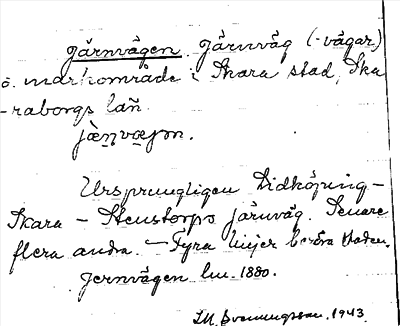 Järnvägen. Järnväg (-vägar)
o. markområde i Skara stad, Ska
-raborgs län.
Ursprungligen Lidköping-
Skara - Stenstorps järnväg. Senare
flera andra. - Fyra linjer beröra staden.
Jernvägen lm. 1880.
1943